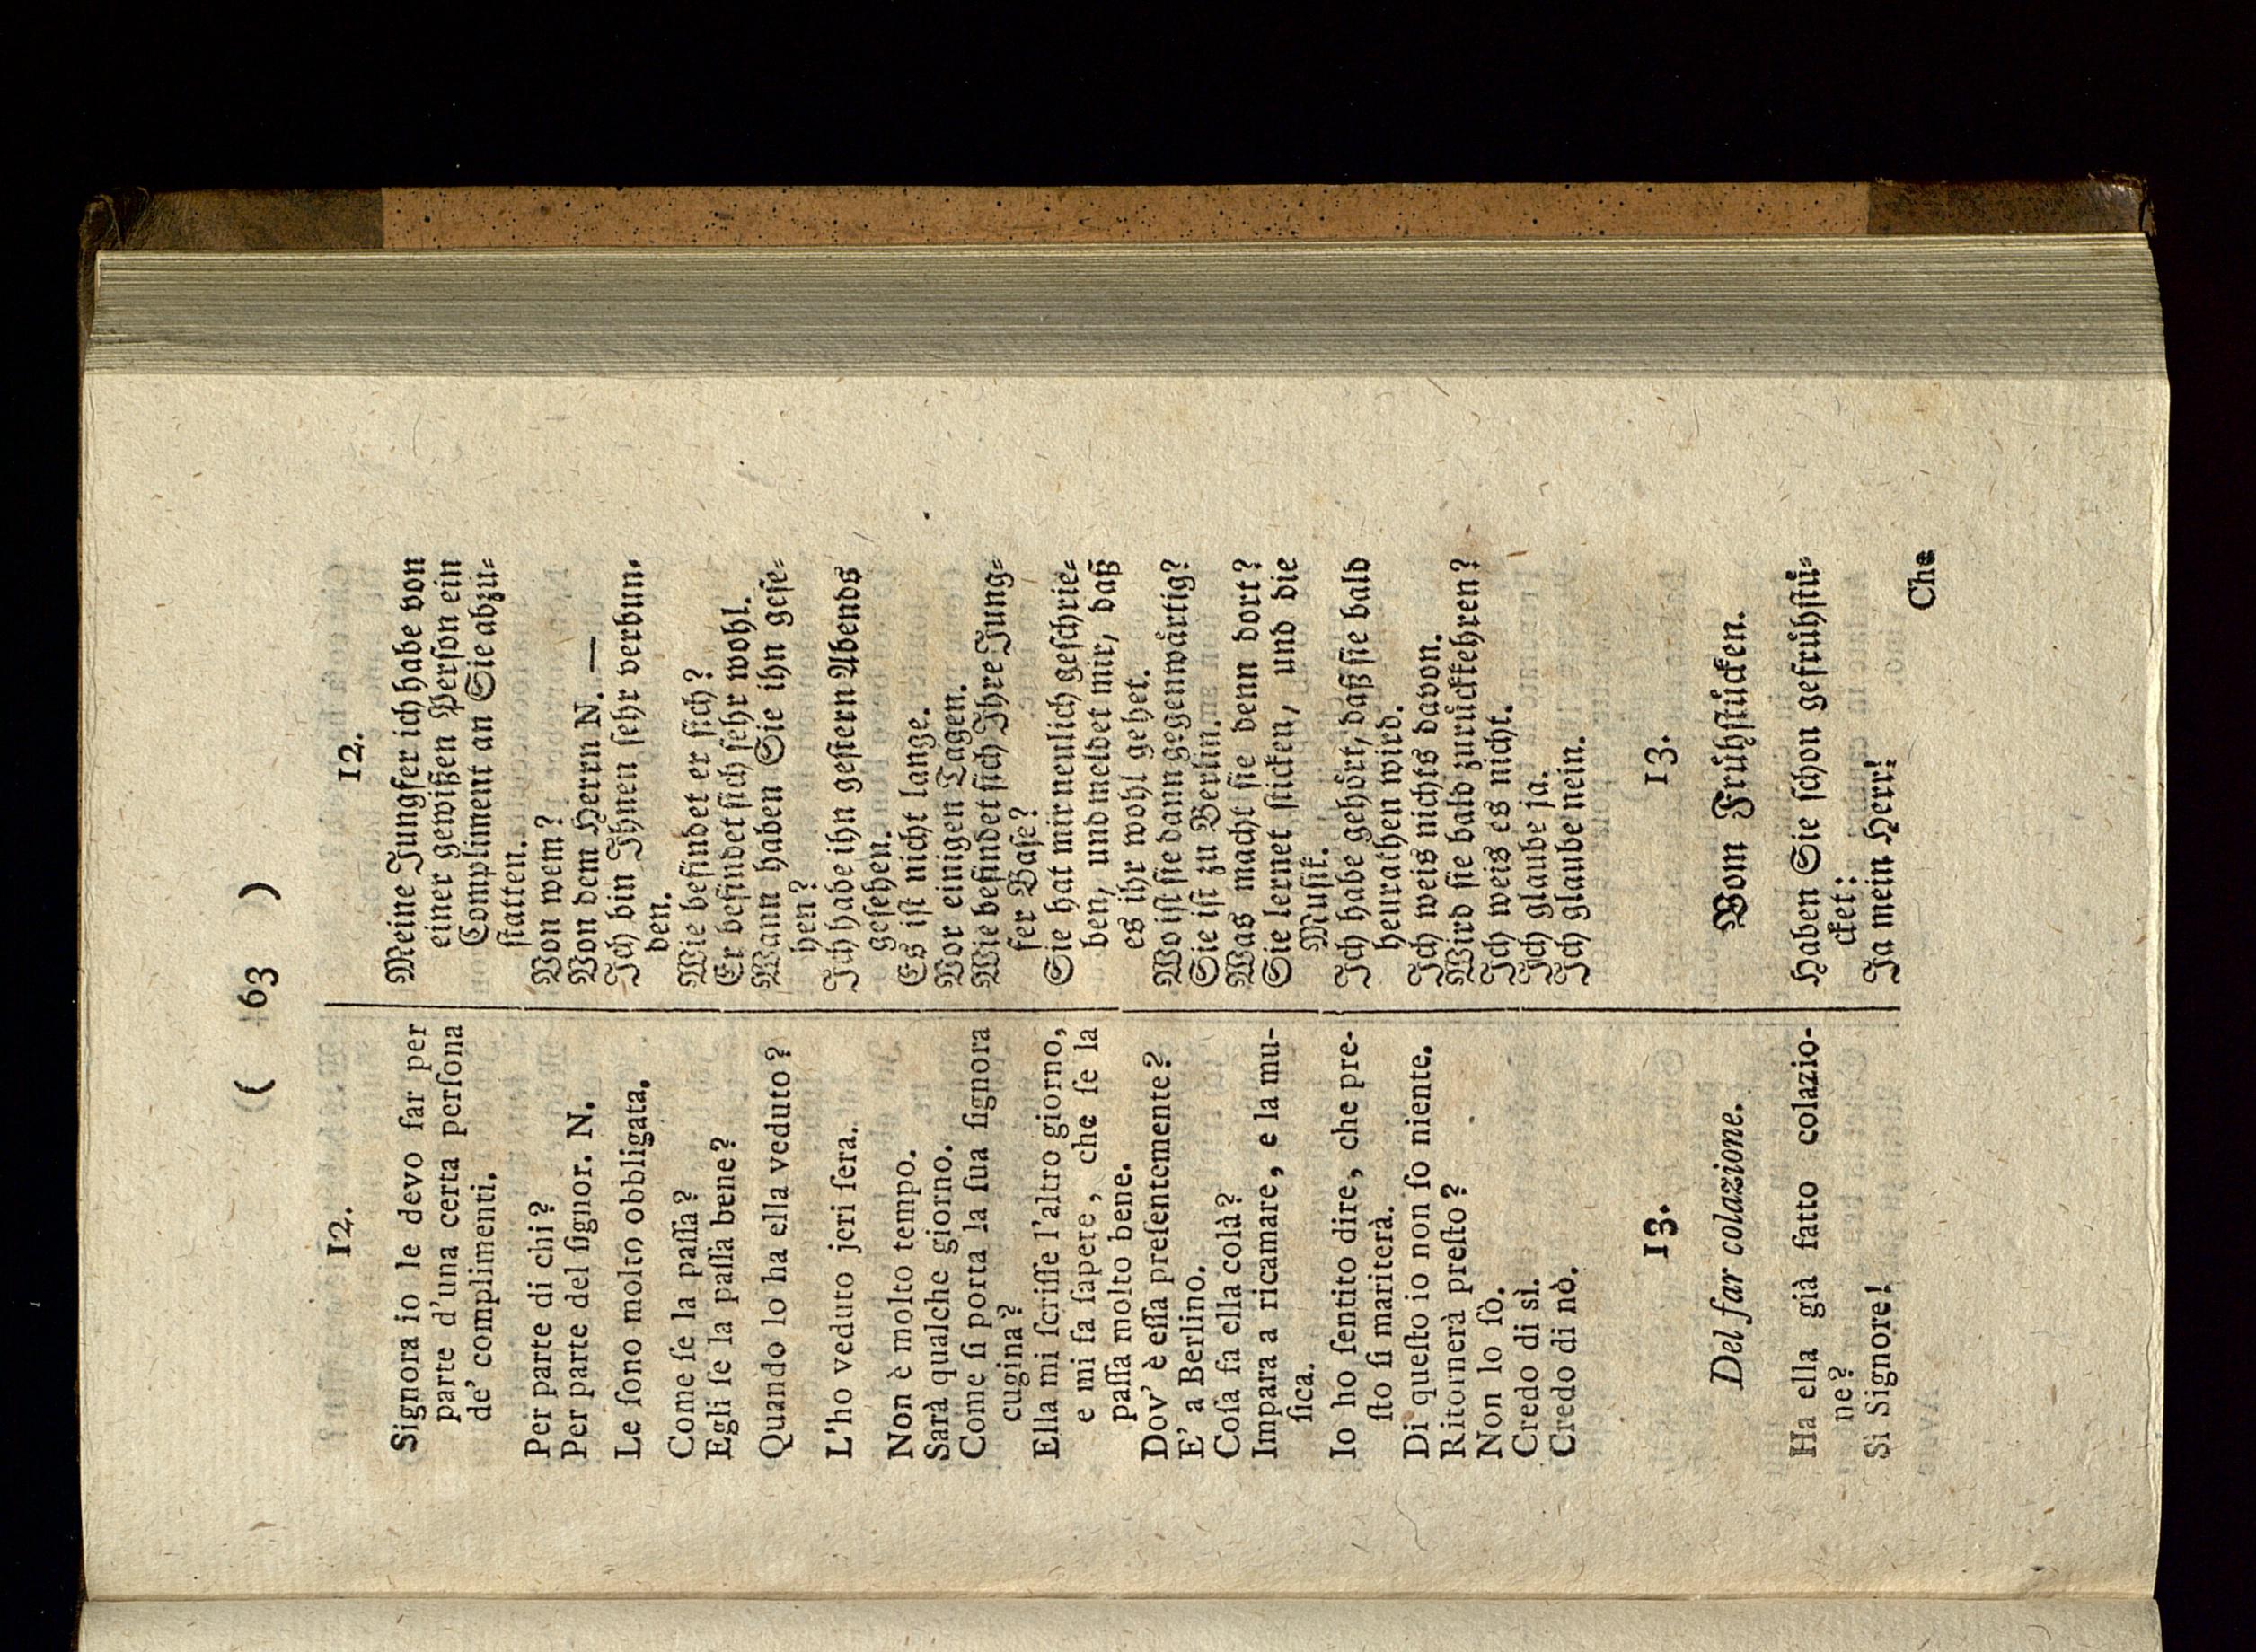 ( 63 )
12.
Signora io le devo far per
parte d'una certa perſona
de' complimenti.
Per parte di chi?
Per parte del ſignor. N.
Le ſono molto obbligata.
Come ſe la paſſa?
Egli ſe la paſſa bene?
Quando lo ha ella veduto?
L'ho veduto jeri ſera.
Non è molto tempo.
Sarà qualche giorno.
Come ſi porta la ſua ſignora
cugina?
Ella mi ſcriſſe l'altro giorno,
e mi fa ſapere, che ſe la
paſſa molto bene.
Dov' è eſſa preſentemente?
E' a Berlino.
Coſa fa ella colà?
Impara a ricamare, e la mu-
ſica.
Io ho ſentito dire, che pre-
ſto ſi mariterà.
Di queſto io non ſo niente.
Ritornerà preſto?
Non lo ſò.
Credo di sì.
Credo di nò.
13.
Del far colazione.
Ha ella già fatto colazio-
ne?
Sì Signore!
12.
Meine Jungfer ich habe von
einer gewißen Perſon ein
Compliment an Sie abzu-
ſtatten.
Von wem?
Von dem Herrn N. —
Ich bin Ihnen ſehr verbun-
den.
Wie befindet er ſich?
Er befindet ſich ſehr wohl.
Wann haben Sie ihn geſe-
hen?
Ich habe ihn geſtern Abends
geſehen.
Es iſt nicht lange.
Vor einigen Tagen.
Wie befindet ſich Ihre Jung-
fer Baſe?
Sie hat mir neulich geſchrie-
ben, und meldet mir, daß
es ihr wohl gehet.
Wo iſt ſie dann gegenwårtig?
Sie iſt zu Berlin.
Was macht ſie denn dort?
Sie lernet ſticken, und die
Muſik.
Ich habe gehört, daß ſie bald
heurathen wird.
Ich weis nichts davon.
Wird ſie bald zurůckkehren?
Ich weis es nicht.
Ich glaube ja.
Ich glaube nein.
13.
Vom Frůhſtůcken.
Haben Sie ſchon gefrůhſtů-
cket:
Ja mein Herr!
Che